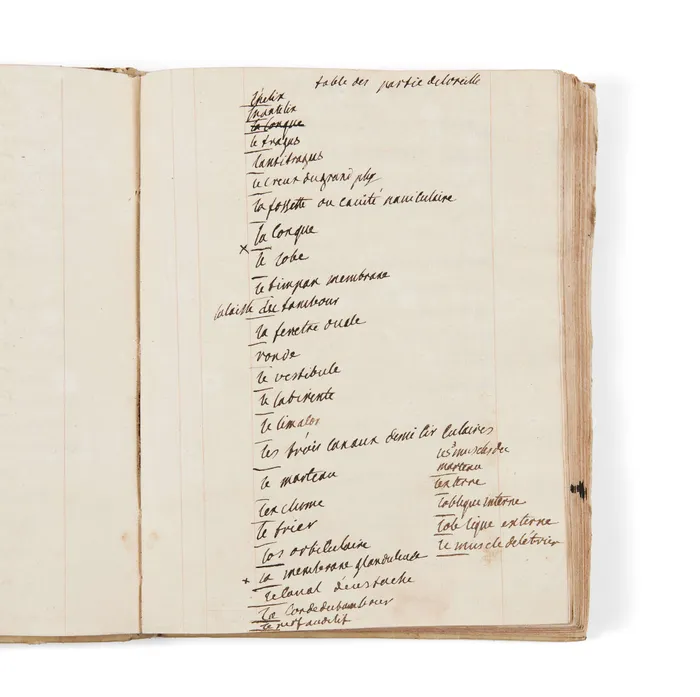 table des partie deloreille
lhelix
lantelix
la conque
le tragus
lantitragus
le creux du grand
la fossette ou cavité naviculaire
la conque
x
le lobe
le timpan membrane
la laisse du tambour
la fenetre ovale
ronde
le vestibule
le labirente
le limason
les trois canaux demi cir culaires
le marteau
lenclume
le trier
los orbiculaire
x la membrane glanduleuse
le canal deustache
la corde du tambour
le nerf auditif
les 3 muscles du
marteau
lexterne
loblique interne
loblique externe
le muscle de létrier